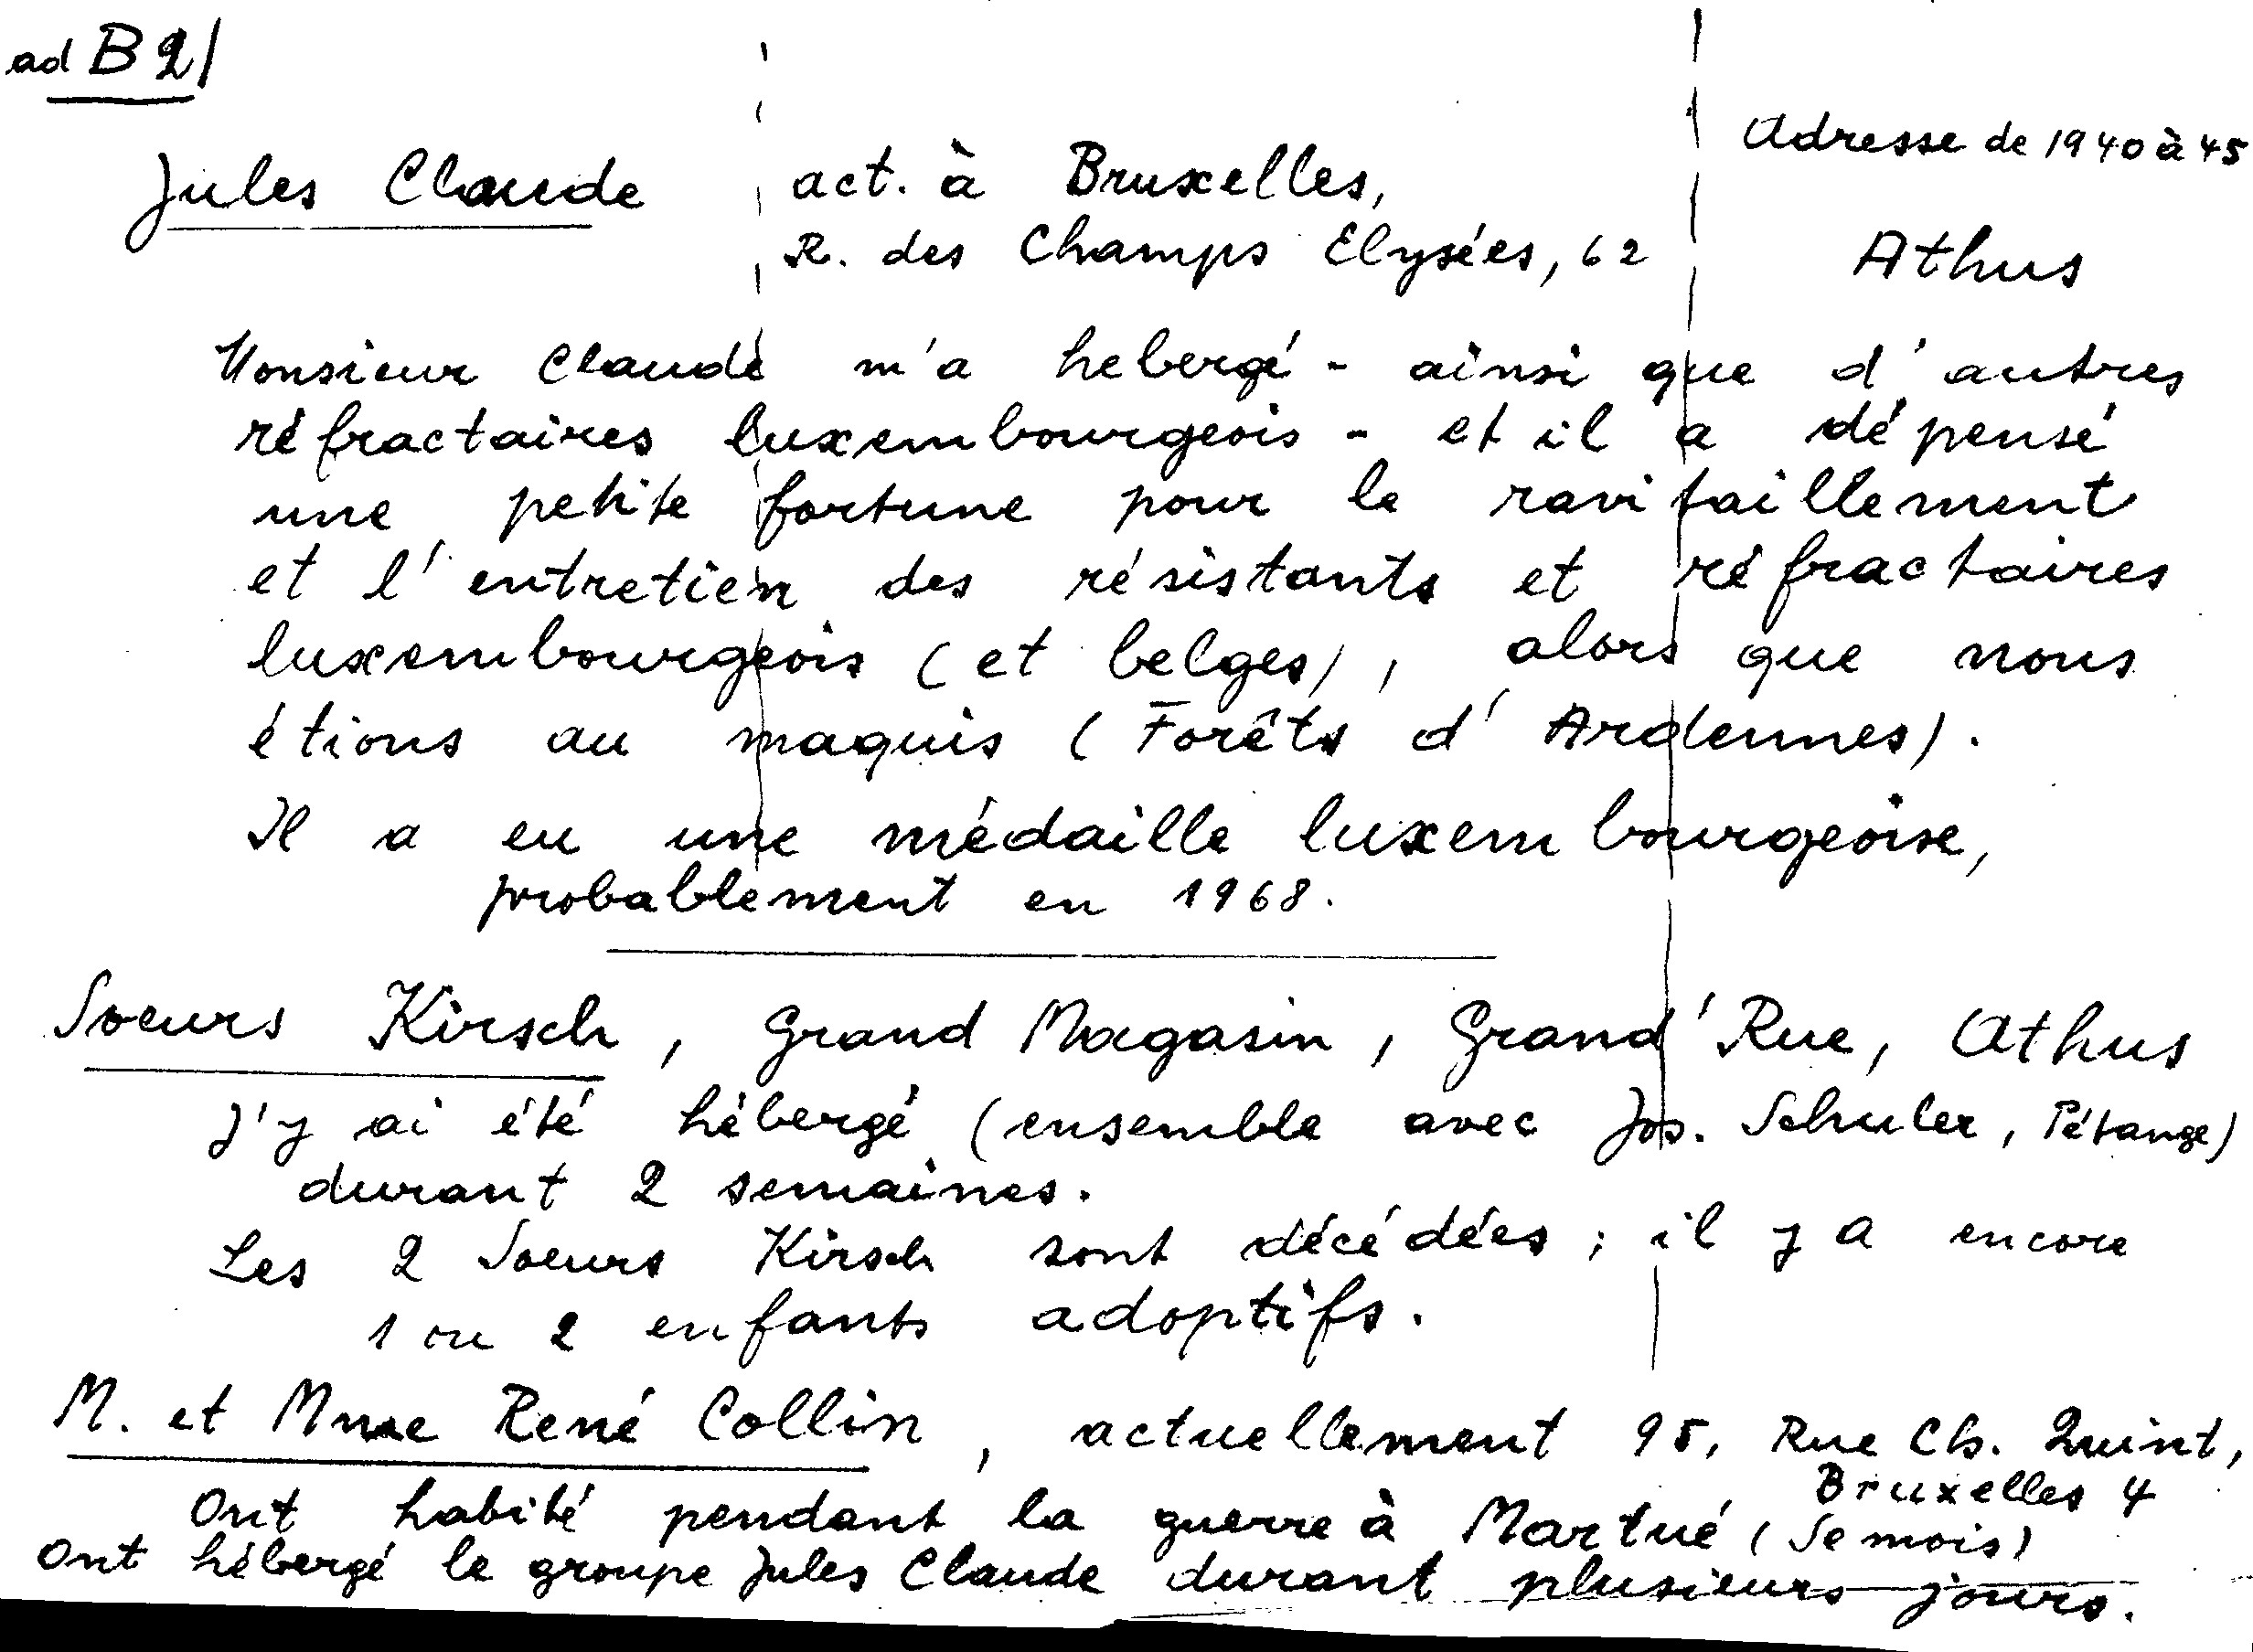 ad B 2/
Adresse de 1940 à 45
Jules Claude act. à Bruxelles,
R. des Champs Elysées, 62 Athus
Monsieur Claude m'a hebergé - ainsi que d'autres
réfractaires luxembourgeois - et il a dépensé
une petite fortune pour le ravitaillement
et l'entretien des résistants et réfractaires
luxembourgeois (et belges), alors que nous
étions au maquis (Forêts d'Ardennes).
Il a eu une médaille luxembourgeoise,
probablement en 1968.
Soeurs Kirsch, Grand Magasin, Grand'Rue, Athus
J'y ai été hébergé (ensemble avec Jos. Schuler, Pétange)
durant 2 semaines.
Les 2 Soeurs Kirsch sont décédées ; il y a encore
1 ou 2 enfants adoptifs.
M. et Mme René Collin, actuellement 95, Rue Ch. Quint,
Bruxelles 4
Ont habité pendant la guerre à Martué (Semois)
Ont hébergé le groupe Jules Claude durant plusieurs jours.